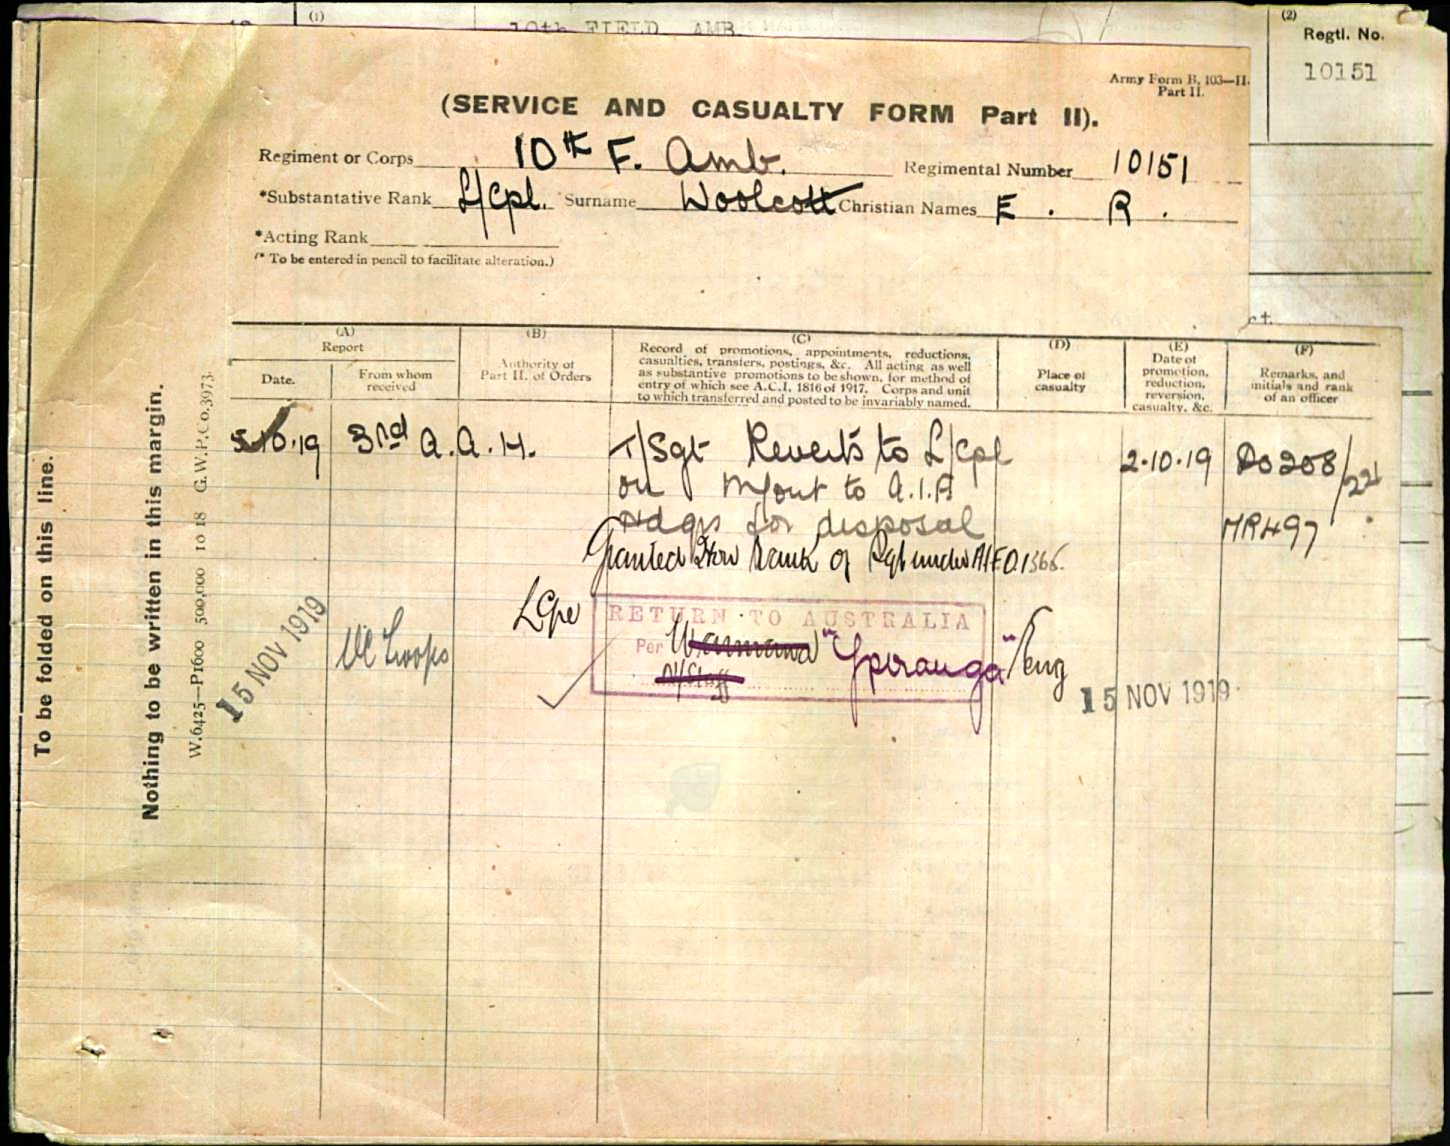 (1)
10th FIELD AMB.
(2)
Regtl. No.
10151
Army Form B. 103—II.
Part II.
(SERVICE AND CASUALTY FORM Part II).
Regiment or Corps 10th F. Amb. Regimental Number 10151
*Substantative Rank L/Cpl. Surname Woolcott Christian Names E. R.
*Acting Rank
(* To be entered in pencil to facilitate alteration.)
ct.
To be folded on this line.
Nothing to be written in this margin.
W.6425—P1600 500,000 10 18 G.W.P.Co.3973.
(A)
Report
Date.
From whom
received
(B)
Authority of
Part II. of Orders
(C)
Record of promotions, appointments, reductions,
casualties, transfers, postings, &c. All acting as well
as substantive promotions to be shown, for method of
entry of which see A.C.I. 1816 of 1917. Corps and unit
to which transferred and posted to be invariably named.
(D)
Place of
casualty
(E)
Date of
promotion,
reduction,
reversion,
casualty, &c.
(F)
Remarks, and
initials and rank
of an officer
5.10.19 3rd A.A.H. T/Sgt Reverts to L/Cpl 2.10.19 DO208/221
on M/out to A.I.F
Hdqrs for disposal MR497
Granted Hon Rank of Sgt under AIFO 1366.
15 NOV 1919 Troops LCpl
RETURN TO AUSTRALIA
Per "Ypiranga" Eng
15 NOV 1919